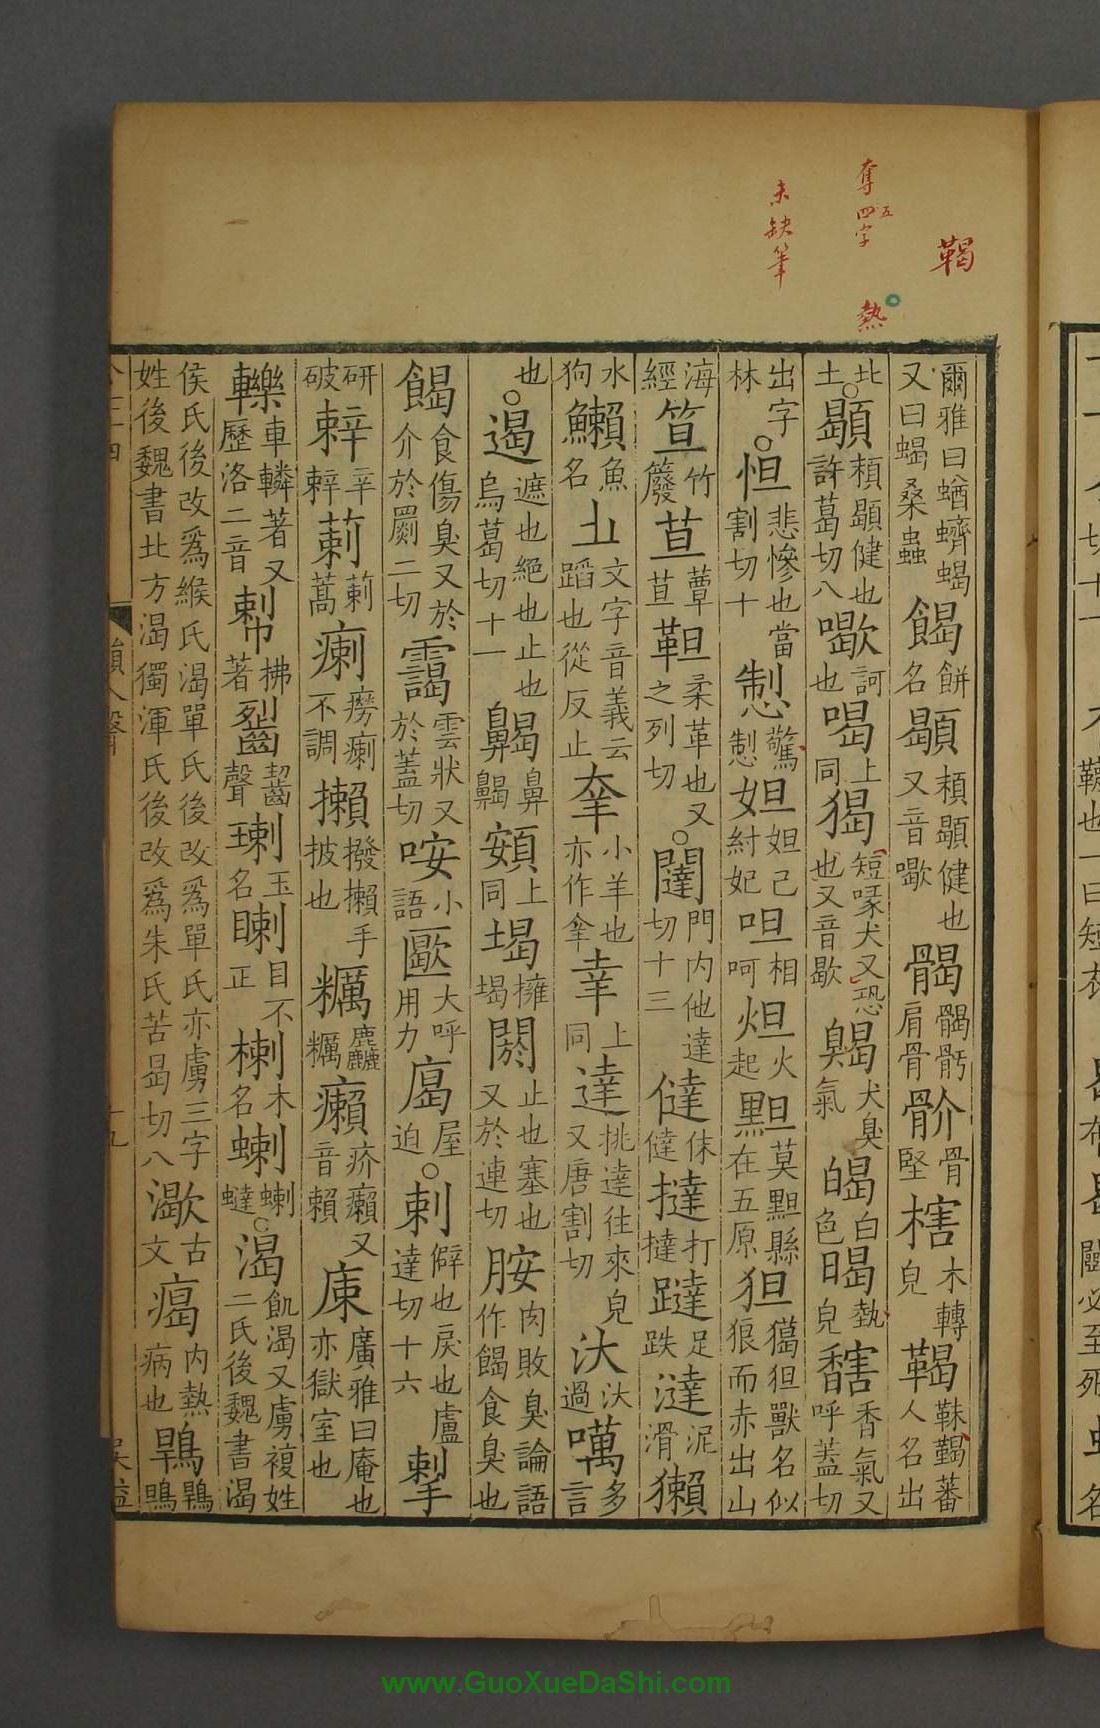 鞨
奪四五字
熱
未缺筆
爾雅曰蝤蠐蝎又曰蝎桑蟲餲餅名顯頪顯健也又音歇髑髑骬肩骨骱骨堅㮫木轉皃鞨靺鞨蕃人名出
北土○顯頪顯健也許葛切八歇訶也喝上同猲短喙犬又恐也又音歇䐛犬臭氣䑽白色暍熱皃䅥香氣又呼蓋切
出字林○怛悲慘也當割切十㤠驚㤠妲妲己紂妃呾相呵炟火起䵣莫䵣縣在五原狚獦狚獸名似狼而赤出山
海經笪竹籧苴蕈苴靼柔革也又之列切○闥門内他達切十三㒓㑄㒓撻打撻躂足跌澾泥滑獺
水狗鱳魚名𣥂文字音義云蹈也從反止羍小羊也亦作𦍒㚔上同達挑達往來皃又唐割切汏汏過噧多言
也○遏遮也絕也止也烏葛切十一齃鼻齃頞上同堨擁堨閼止也塞也又於連切胺肉敗臭論語作餲食臭也
餲食傷臭又於介於罽二切靄雲狀又於蓋切咹小語㔩大呼用力㕎屋迫○剌僻也戾也盧達切十六揧
研破辢辛辢莿莿蒿瘌癆瘌不調攋撥攋手披也糲麤糲癩疥癩又音賴庲廣雅曰庵也亦獄室也
轢車轔著又歷洛二音㡂拂著䶛齧聲瑓玉名睙目不正楋木名蝲蝲𧒒○渴飢渴又虜複姓二氏後魏書渴
侯氏後改爲緱氏渴單氏後改爲單氏亦虜三字姓後魏書北方渴獨渾氏後改爲朱氏苦曷切八㵣古文㾙内熱病也鶡鶡鴠
韻入聲
十九
吳益
www.GuoXueDaShi.com